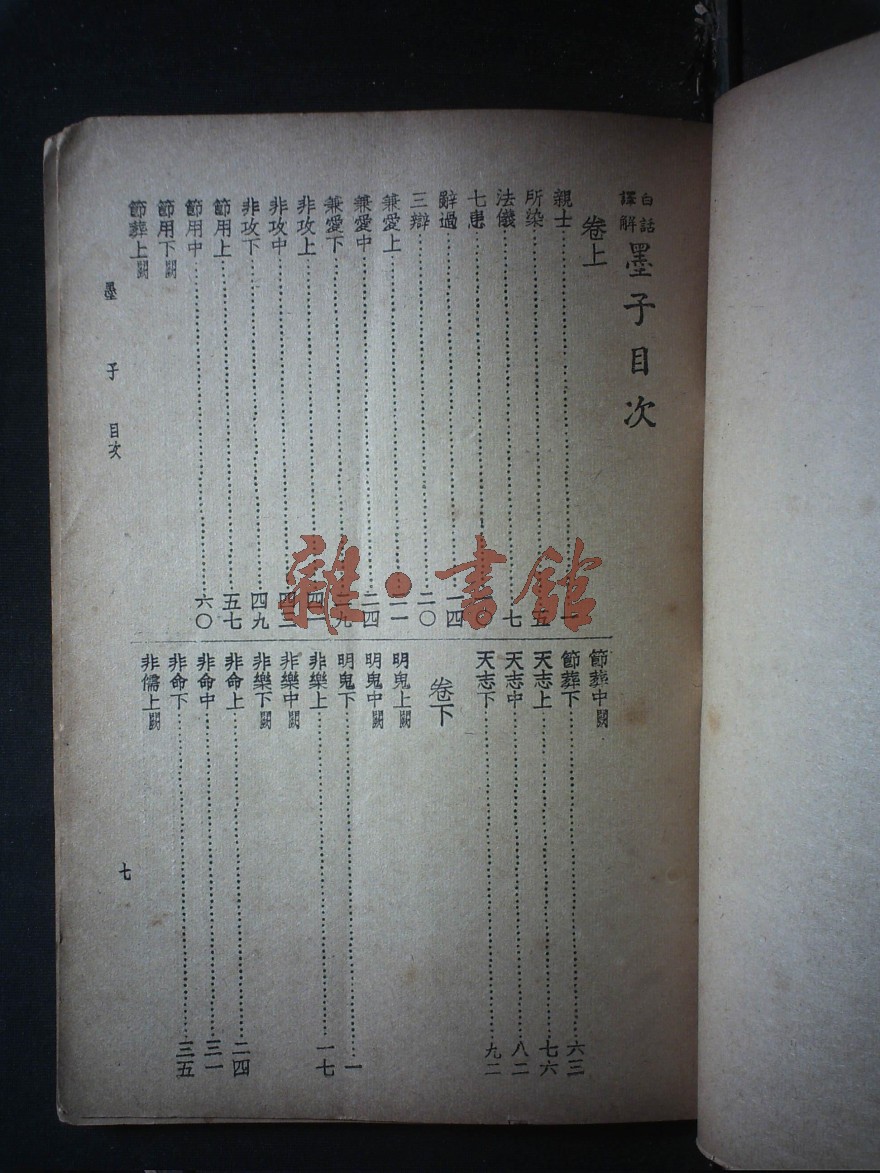 白話譯解墨子目次
卷上
親士……一
所染……五
法儀……七
七患……一〇
辭過……一四
三辯……二〇
兼愛上……二一
兼愛中……二四
兼愛下……二九
非攻上……四一
非攻中……四三
非攻下……四九
節用上……五七
節用中……六〇
節用下闕
節葬上闕
節葬中闕
節葬下……六三
天志上……七六
天志中……八二
天志下……九二
卷下
明鬼上闕
明鬼中闕
明鬼下……一
非樂上……一七
非樂中闕
非樂下闕
非命上……二四
非命中……三一
非命下……三五
非儒上闕
墨子 目次
七
雜·書館